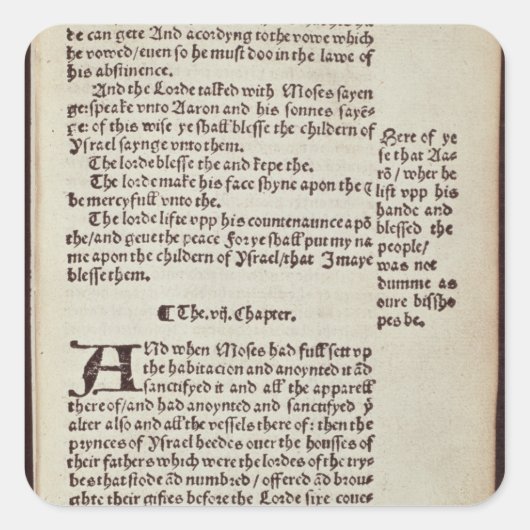 de can gete And acordyng to the vowe which
he vowed/even so he must doo in the lawe of
his abstinence.
And the Lorde talked with Moses sayen
ge: speake vnto Aaron and his sonnes sayē-
ge: of this wise ye shall blesse the childern of
Ysrael saynge vnto them.
The lorde blesse the and kepe the.
The lorde make his face shyne apon the &
be mercyfull vnto the.
The lorde lifte vpp his countenaunce apō
the/and geue the peace For ye shall put my na
me apon the childern of Ysrael/that I maye
blesse them.
Here of ye
se that Aa-
rō/ wher he
lift vpp his
hande and
blessed the
people/
was not
dumme as
oure bissho
pes be.
¶ The .vij. Chapter.
ANd when Moses had full sett vp
the habitacion and anoynted it ād
sanctifyed it and all the apparell
thereof/and had anoynted and sanctifyed yͤ
alter also and all the vessels there of: then the
prynces of Ysrael heedes ouer the housses of
their fathers which were the lordes of the try-
bes that stode ād numbred/ offered ād brou-
ghte their giftes before the Lorde sixe coue-